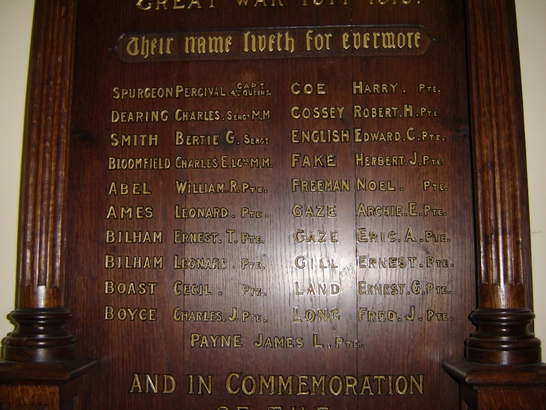 GREAT WAR 1914-1918.
Their name liveth for evermore
SPURGEON PERCIVAL. CAPT. 4TH QUEENS. COE HARRY. PTE.
DEARING CHARLES. SERGT M.M COSSEY ROBERT. H. PTE.
SMITH BERTIE G. SERGT ENGLISH EDWARD. C. PTE.
BLOOMFIELD CHARLES E. LCPL M.M. FAKE HERBERT. J. PTE.
ABEL WILLIAM. R. PTE. FREEMAN NOEL. PTE.
AMES LEONARD. PTE. GAZE ARCHIE. E. PTE.
BILHAM ERNEST. T. PTE. GAZE ERIC. A. PTE.
BILHAM LEONARD. PTE. GILL ERNEST. PTE.
BOAST CECIL. PTE. LAND ERNEST. G. PTE.
BOYCE CHARLES. J. PTE. LONG FRED. J. PTE.
PAYNE JAMES L. PTE.
AND IN COMMEMORATION
OF THE